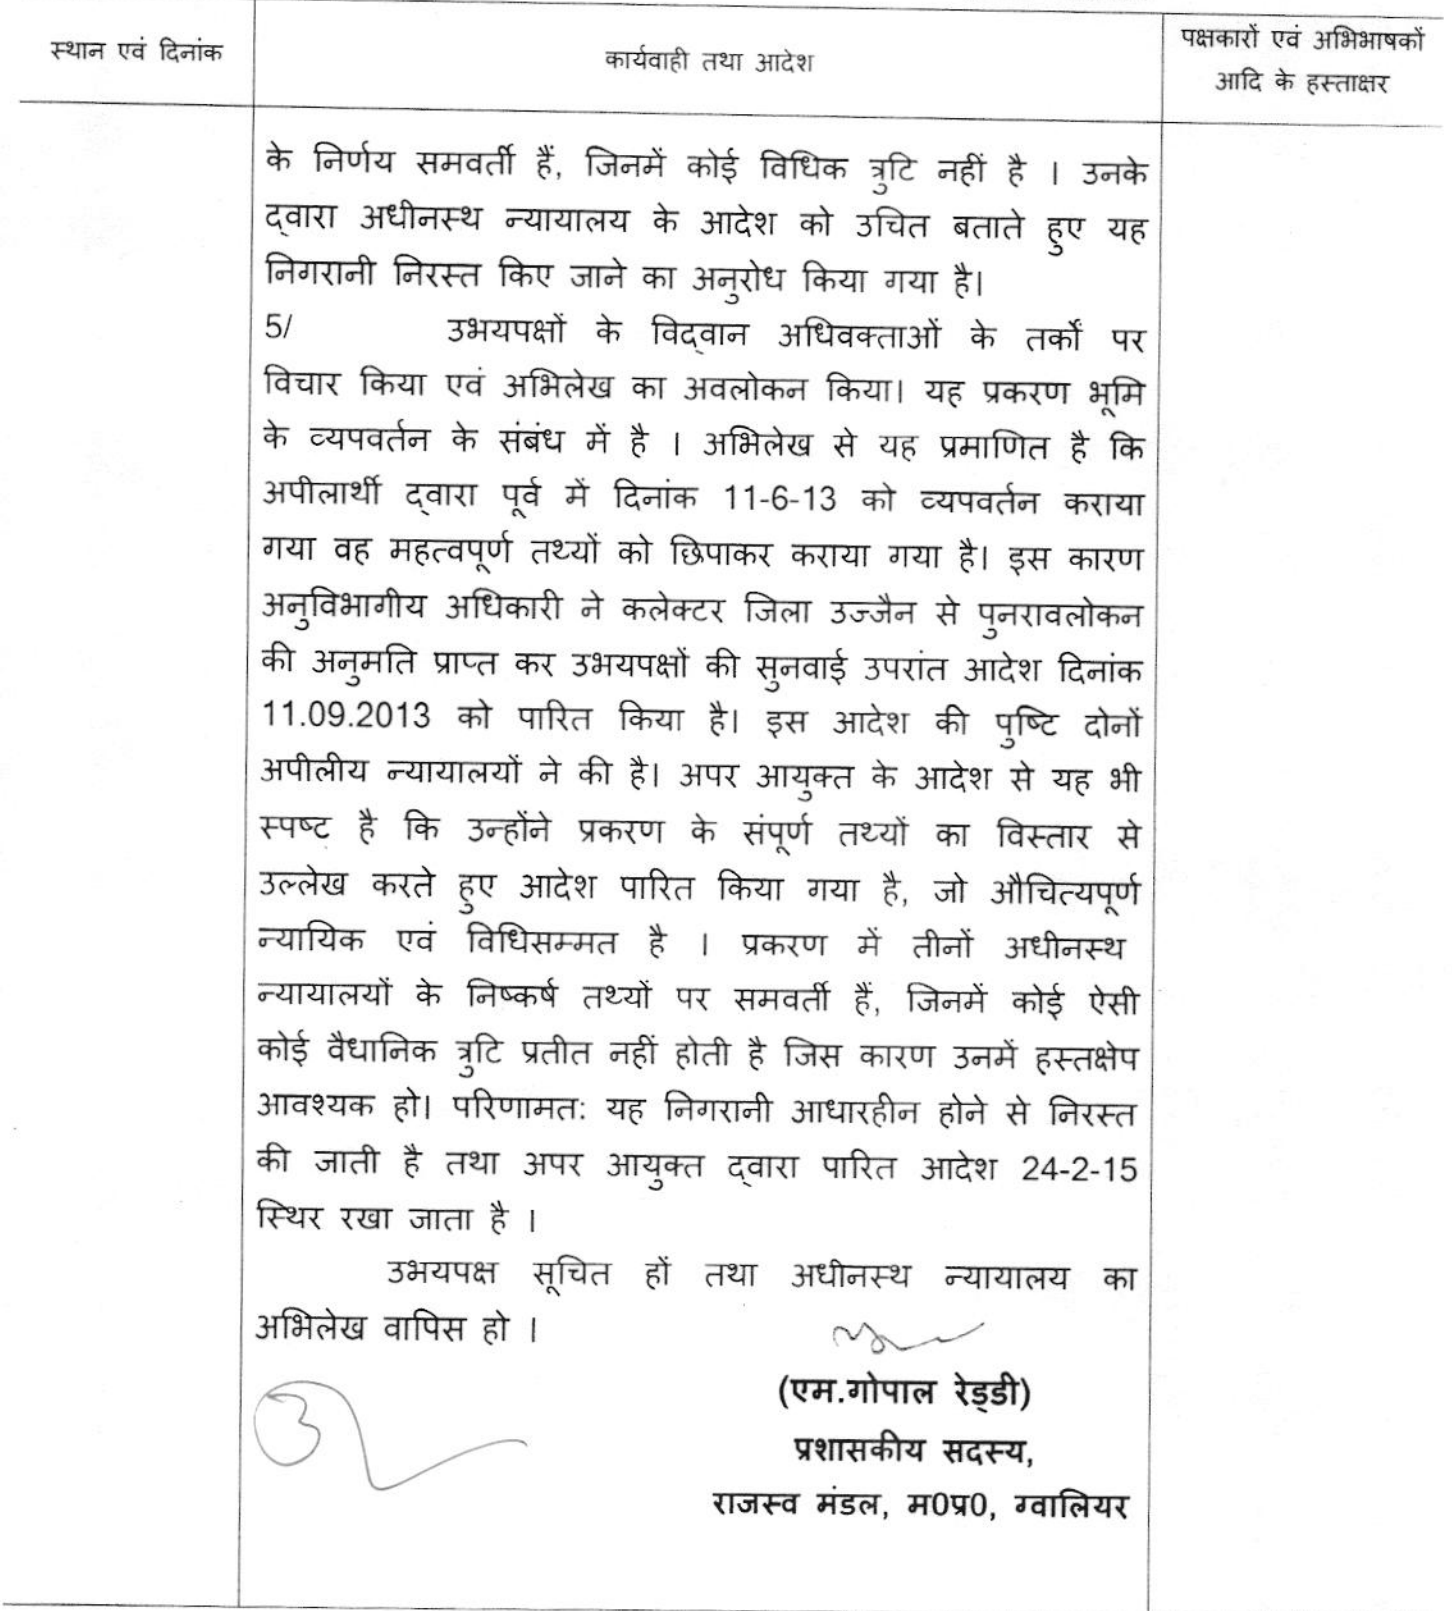 स्थान एवं दिनांक
कार्यवाही तथा आदेश
पक्षकारों एवं अभिभाषकों
आदि के हस्ताक्षर
के निर्णय समवर्ती हैं, जिनमें कोई विधिक त्रुटि नहीं है । उनके
द्वारा अधीनस्थ न्यायालय के आदेश को उचित बताते हुए यह
निगरानी निरस्त किए जाने का अनुरोध किया गया है।
5/ उभयपक्षों के विद्वान अधिवक्ताओं के तर्कों पर
विचार किया एवं अभिलेख का अवलोकन किया। यह प्रकरण भूमि
के व्यपवर्तन के संबंध में है । अभिलेख से यह प्रमाणित है कि
अपीलार्थी द्वारा पूर्व में दिनांक 11-6-13 को व्यपवर्तन कराया
गया वह महत्वपूर्ण तथ्यों को छिपाकर कराया गया है। इस कारण
अनुविभागीय अधिकारी ने कलेक्टर जिला उज्जैन से पुनरावलोकन
की अनुमति प्राप्त कर उभयपक्षों की सुनवाई उपरांत आदेश दिनांक
11.09.2013 को पारित किया है। इस आदेश की पुष्टि दोनों
अपीलीय न्यायालयों ने की है। अपर आयुक्त के आदेश से यह भी
स्पष्ट है कि उन्होंने प्रकरण के संपूर्ण तथ्यों का विस्तार से
उल्लेख करते हुए आदेश पारित किया गया है, जो औचित्यपूर्ण
न्यायिक एवं विधिसम्मत है । प्रकरण में तीनों अधीनस्थ
न्यायालयों के निष्कर्ष तथ्यों पर समवर्ती हैं, जिनमें कोई ऐसी
कोई वैधानिक त्रुटि प्रतीत नहीं होती है जिस कारण उनमें हस्तक्षेप
आवश्यक हो। परिणामतः यह निगरानी आधारहीन होने से निरस्त
की जाती है तथा अपर आयुक्त द्वारा पारित आदेश 24-2-15
स्थिर रखा जाता है ।
उभयपक्ष सूचित हों तथा अधीनस्थ न्यायालय का
अभिलेख वापिस हो ।
(एम.गोपाल रेड्डी)
प्रशासकीय सदस्य,
राजस्व मंडल, म0प्र0, ग्वालियर